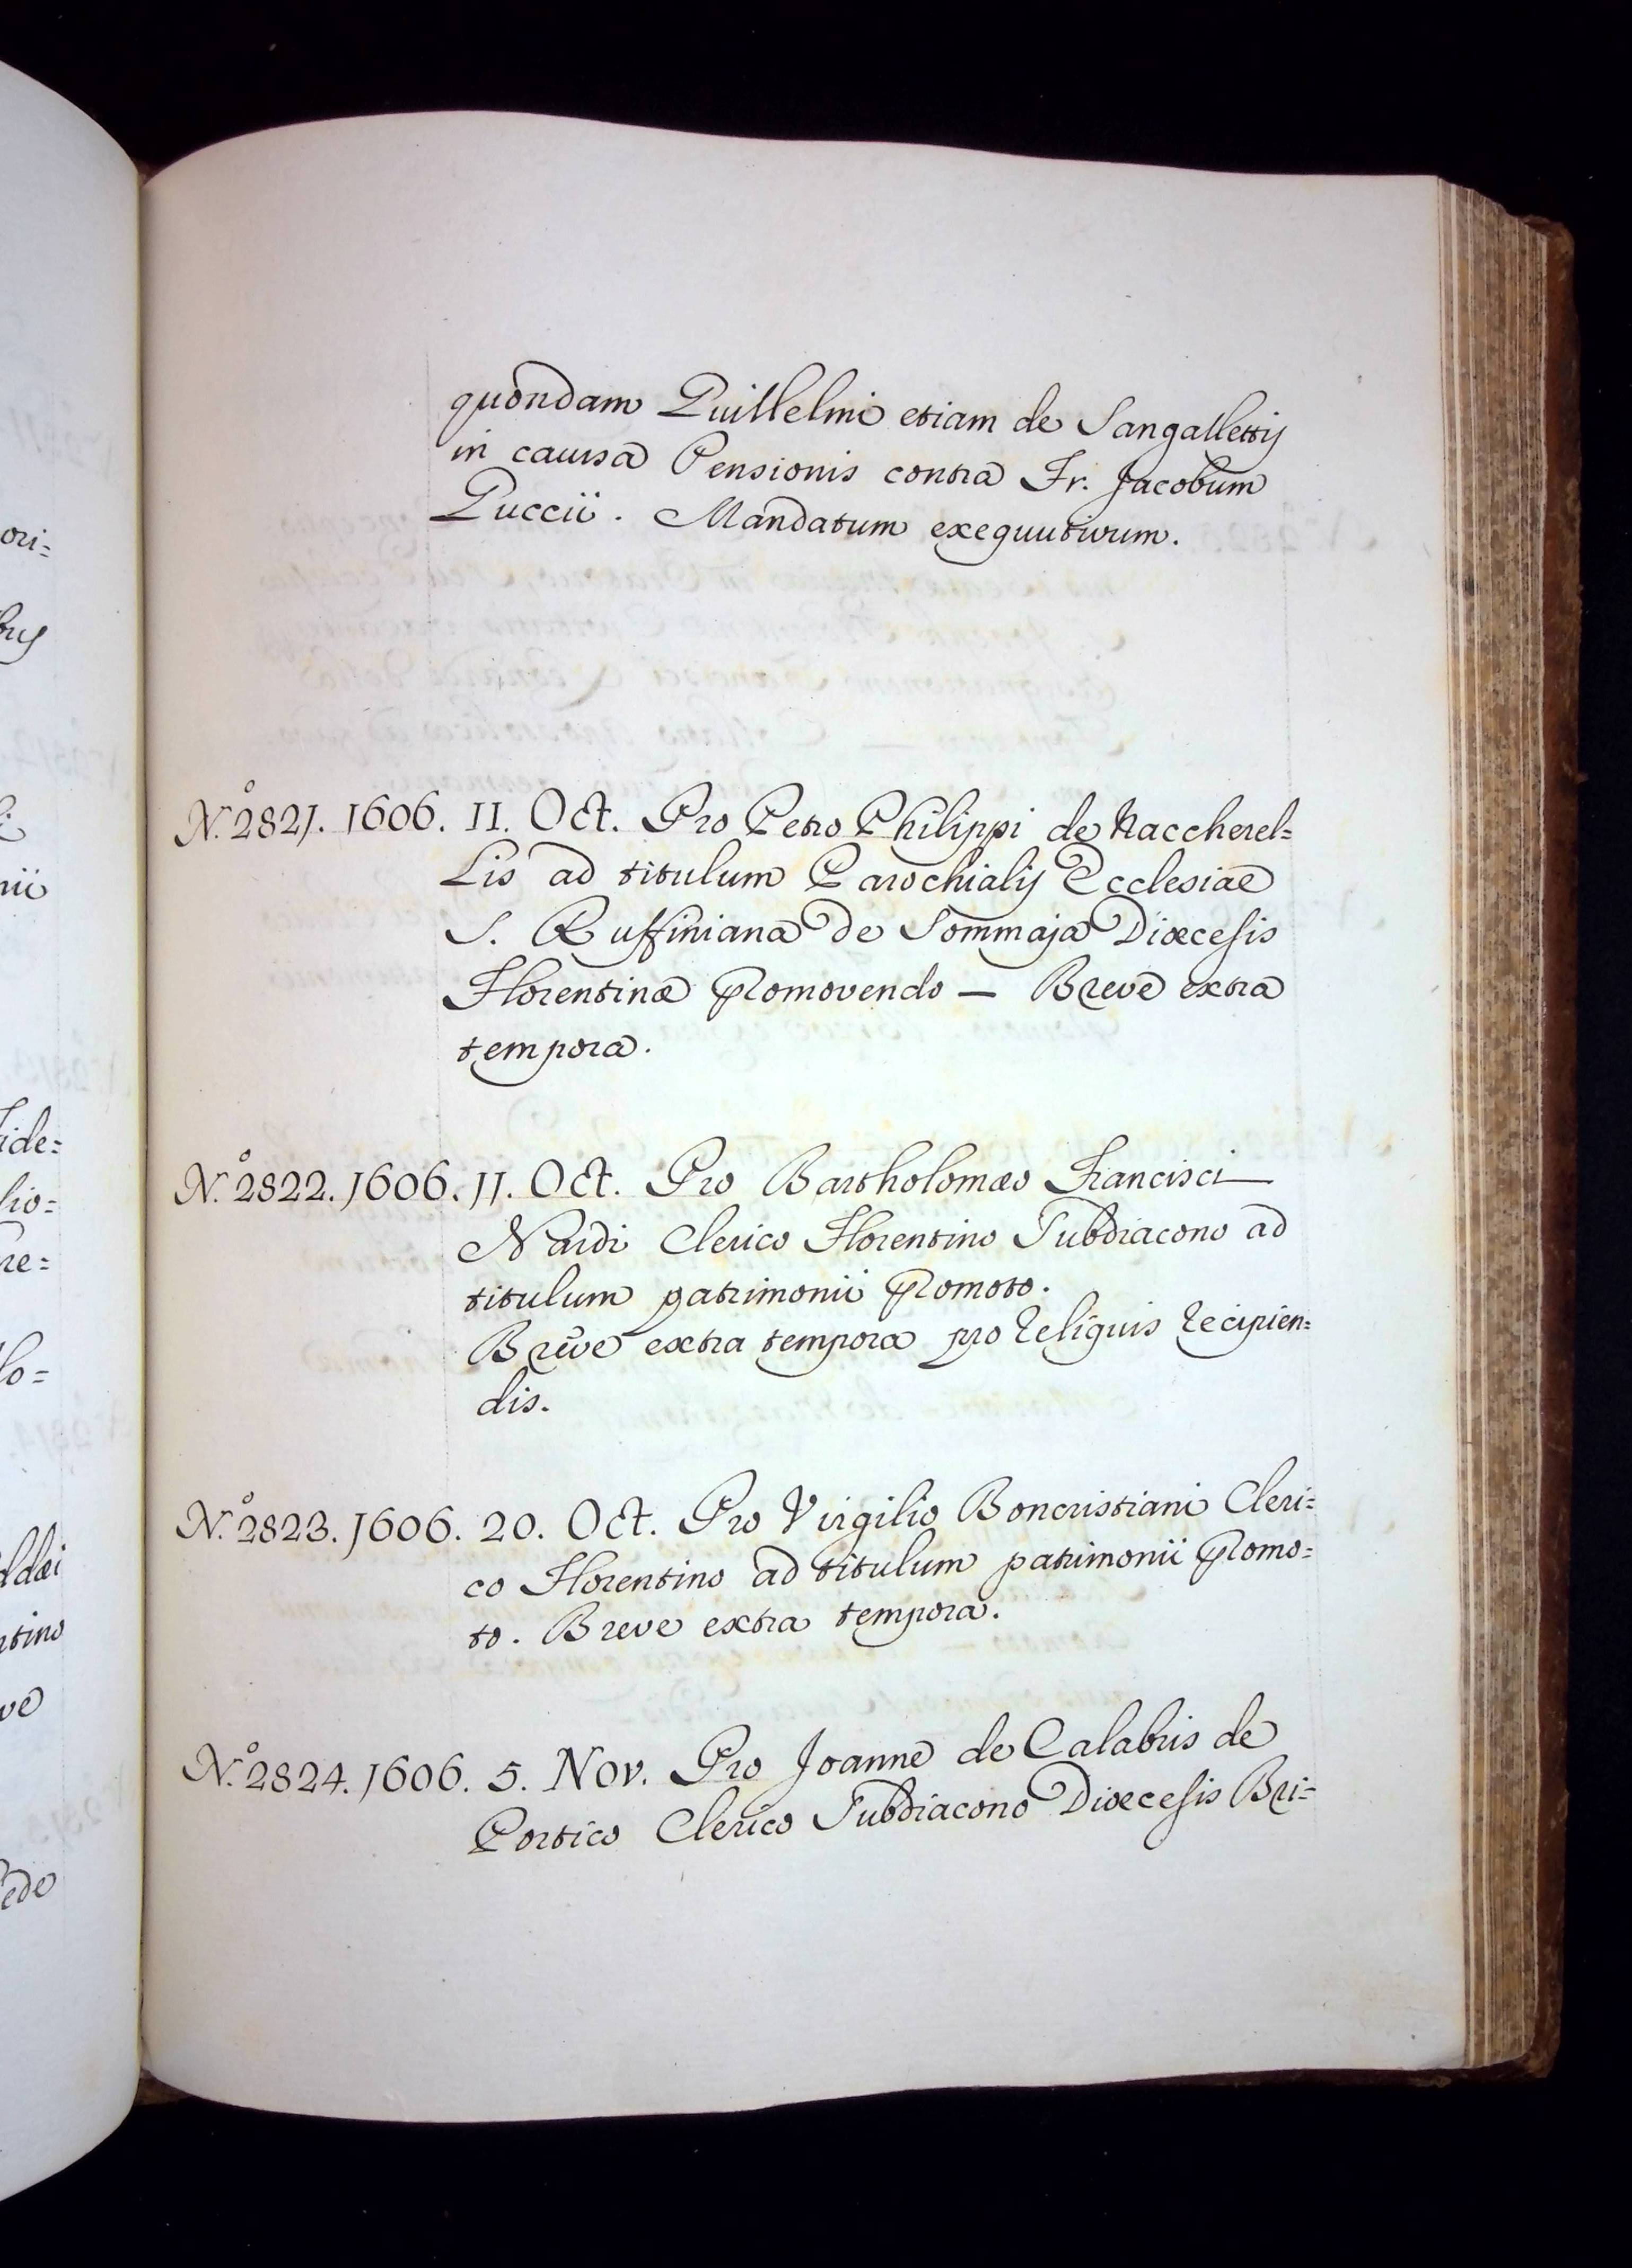 quondam Guillelmi etiam de Sangallettij
in caussa Pensionis contra Fr. Jacobum
Puccii. Mandatum exequutivum.
N.º 2821. 1606. 11. Oct. Pro Petro Philippi de Naccherel=
lis ad titulum Parochialis Ecclesiae
S. Ruffiniana de Sommaja Diœcesis
Florentinæ promovendo — Breve extra
tempora.
N.º 2822. 1606. 11. Oct. Pro Bartholomæo Francisci
Nardi Clerico Florentino Subdiacono ad
titulum patrimonii promoto.
Breve extra tempora pro reliquis recipien=
dis.
N.º 2823. 1606. 20. Oct. Pro Virgilio Boncristiani Cleri=
co Florentino ad titulum patrimonii promo=
to. Breve extra tempora.
N.º 2824. 1606. 5. Nov. Pro Joanne de Calabris de
Portico Clerico Subdiacono Diœcesis Bri=
ori=
bus
nii
lio=
re=
lo=
ldæi
ntino
ve